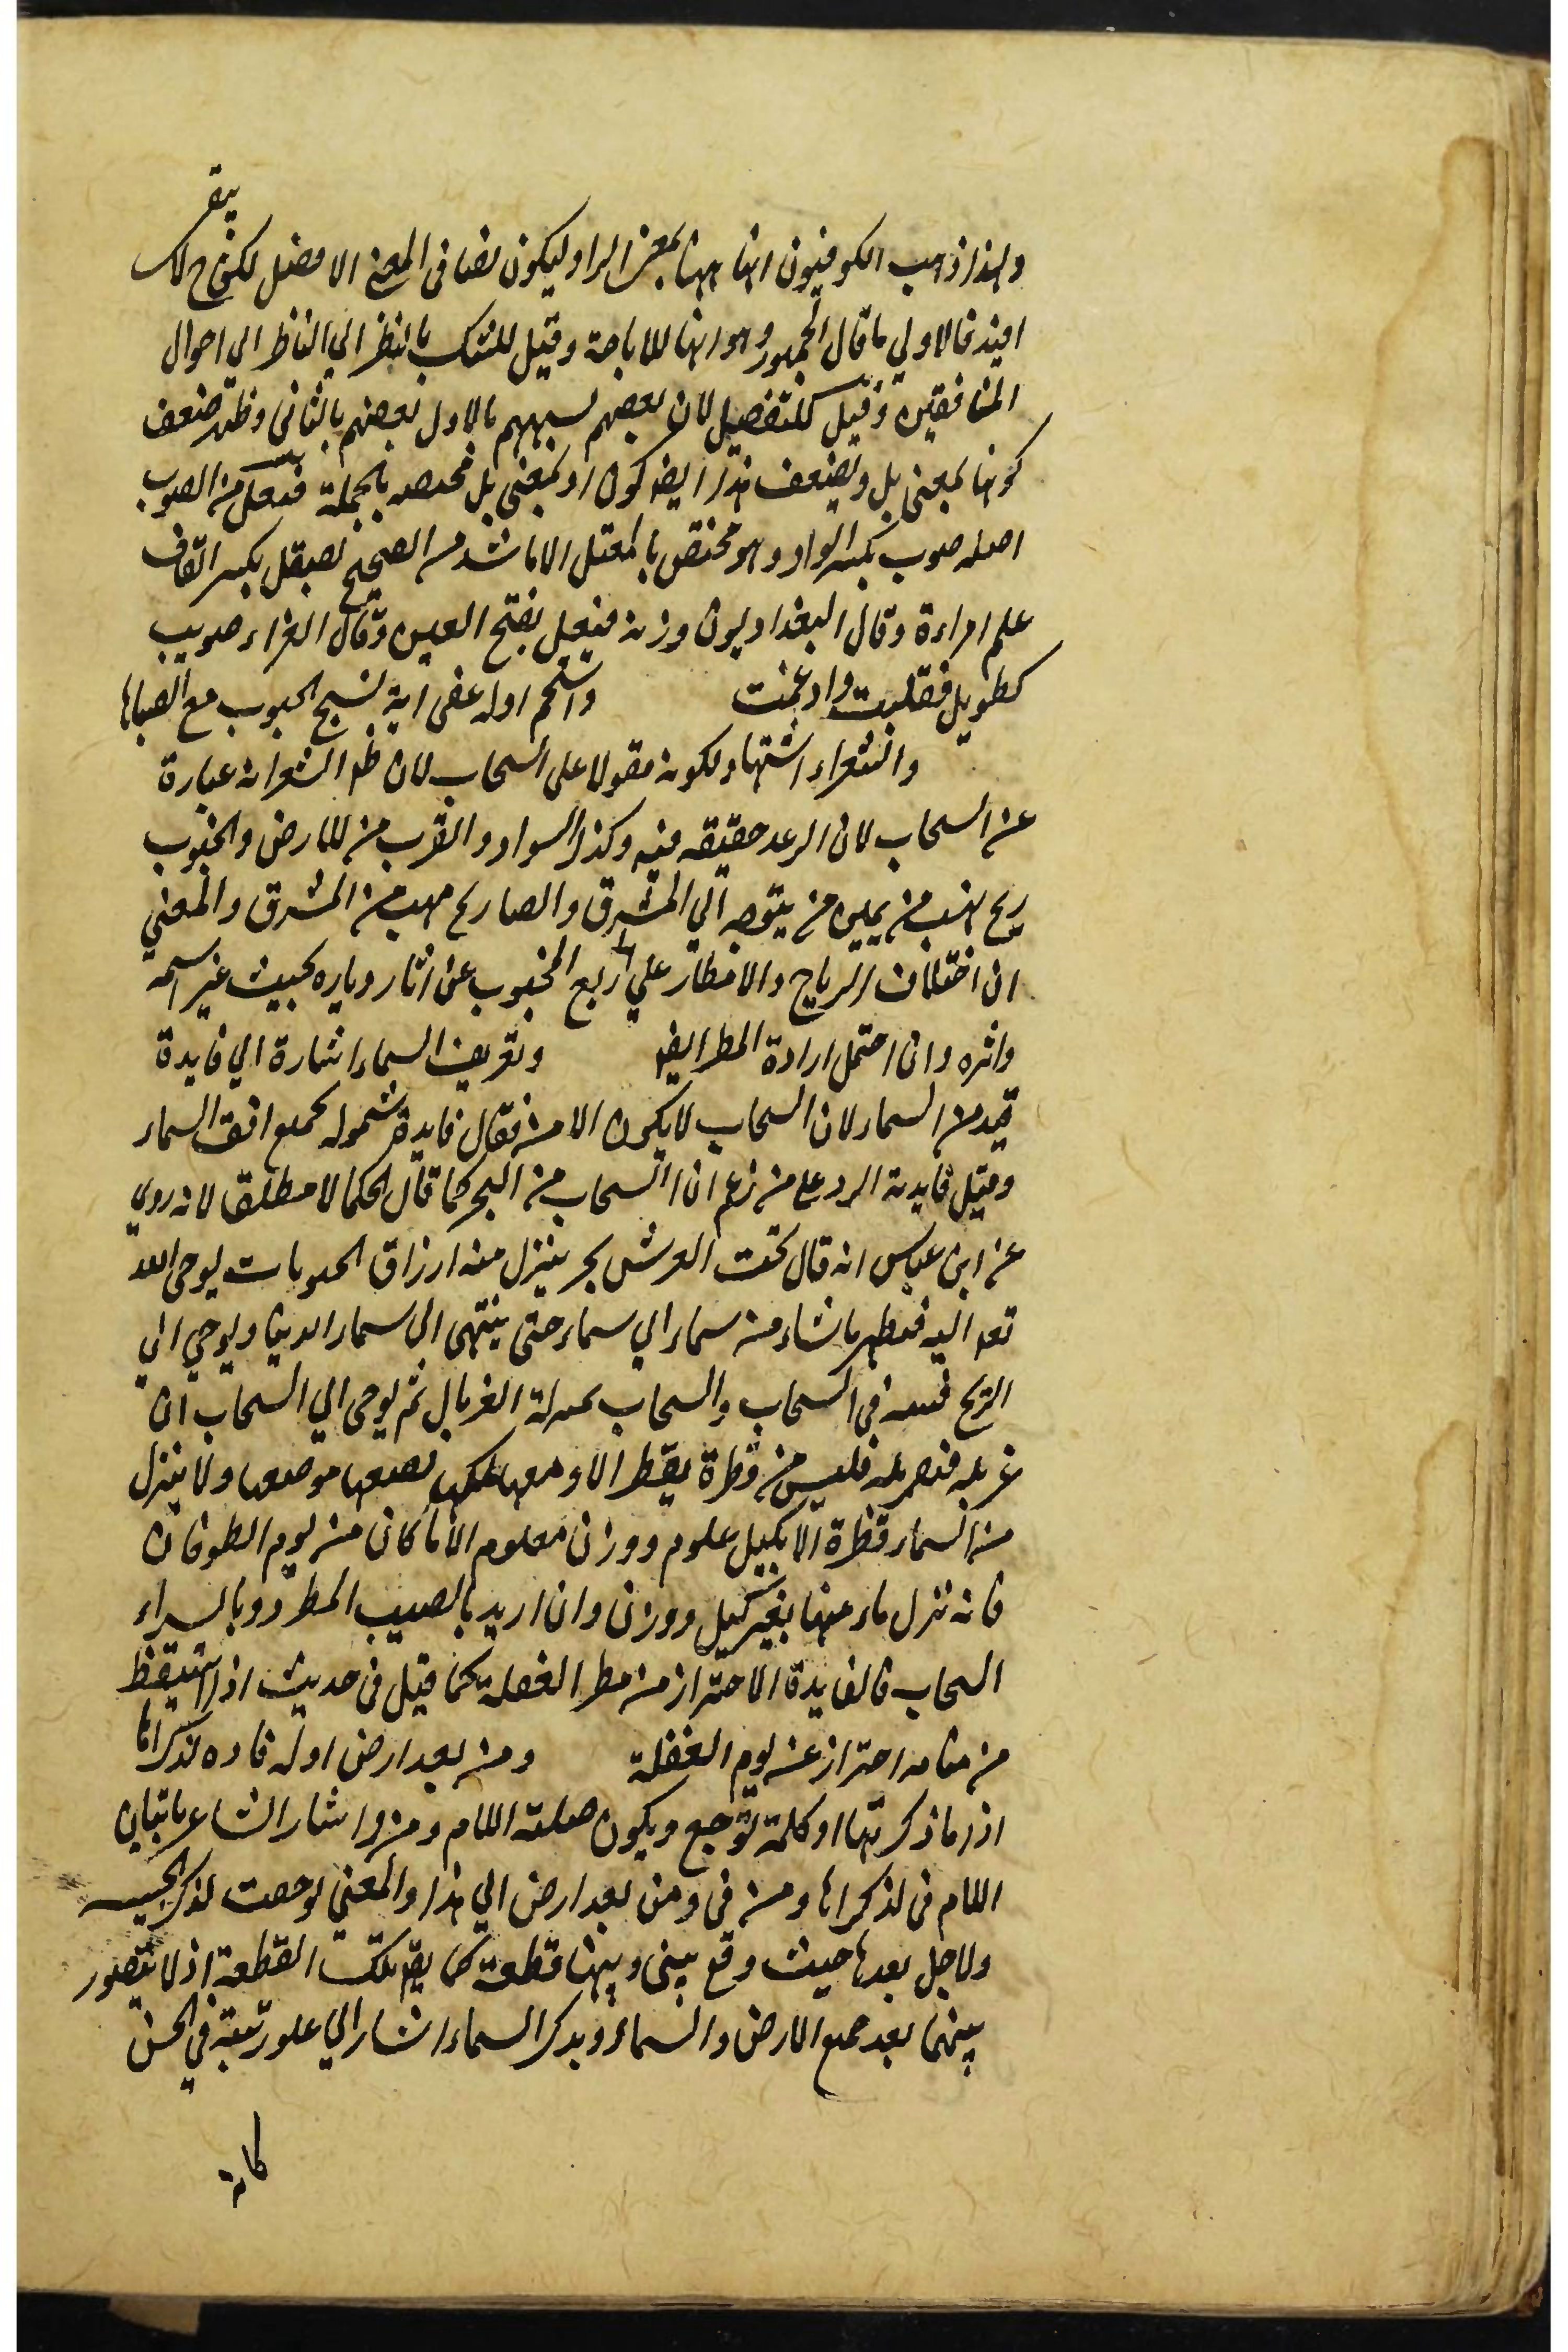 يبقى
ولهذا ذهب الكوفيون انها ههنا بمعنى الواو ليكون نصا فى المعنى الافضل لكن ح لا
افيد فالاولي ما قال الجمهور وهو انها للاباحة وقيل للشك بالنظر الي الناظر الي احوال
المنافقين وقيل للتفصيل لان بعضهم يشبههم بالاول بعضهم بالثانى وظهر ضعف
كونها بمعنى بل ويضعف هذا ايضا كون او بمعنى بل مختصه بالجملة فيعل من الصوب
اصله صوب بكسر الواو وهو مختص بالمعتل الا ما شذ من الصحيح لصيقل بكسر القاف
علم امراءة وقال البغداديون وزنه فيعل بفتح العين وقال الفراء صويب
كطويل فقلبت وادغمت واسحم اوله عفى اية نسج الجنوب مع الصباها
والشعراء اشتهاد لكونه مقولا على السحاب لان ظ الشعر انه عبارة
عن السحاب لان الرعد حقيقه فيه وكذا السواد والقرب من للارض والجنوب
ريح تهب من يمين من يتوجه الي المشرق والصبا ريح مهب من المشرق والمعني
ان اختلاف الرياح والامطار علي ربع المحبوب عن اثار دياره بحيث غير اسمه
واثره وان احتمل ارادة المطر ايضا وتعريف السماء اشارة الي فايدة
قيد من السماء لان السحاب لا يكون الا منه فقال فايدة شموله بجميع افق السماء
وقيل فايدته الرد على من زعم ان السحاب من البحر كما قال الحكما لا مطلقا لانه روي
عن ابن عباس انه قال تحت العرش بحر ينزل منه ارزاق الحيوانات يوحى الله
تعه اليه فيمطر ما شاء من سماء الي سماء حتى ينتهى الى سماء الدنيا ويوحي الي
الريح فى السحاب والسحاب بمنزلة الغربال ثم يوحى الي السحاب ان
غربله فيغربله فليس من قطرة يقطر الا ومعها ملك يضعها موضعها ولا ينزل
من السماء قطرة الا بكيل علوم ووزن معلوم الا ما كان من يوم الطوفان
فانه نزل ماء منها بغير كيل ووزن وان اريد بالصيب المطر وبالسماء
السحاب فالفايدة الاحتراز من مطر الغفلة كما قيل فى حديث اذا استيقظ
من منامه احتراز عن يوم الغفلة ومن بعد ارض اوله فاوه لذكراها
اذا ما ذكرتها اوه كلمة توجع ويكون صلته اللام ومن واشار الشاعر باتيان
اللام فى لذكراها ومن فى ومن بعد ارض الي هذا والمعني توجعت لذكر الحبيبه
ولاجل بعدها حيث وقع بينى وبينها قطعة كما يقه تلك القطعة اذ لا يتصور
بينهما بعد جميع الارض والسماء وبذكر السماء اشار الي علو رتبة في الحسن
كانه